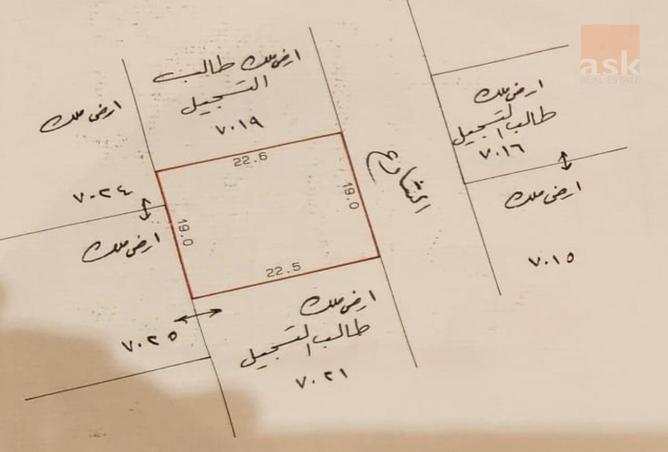 ask
REAL ESTATE
ارض ملك طالب
التسجيل
٧٠١٩
ارض ملك
٧٠٢٤
ارض ملك
طالب التسجيل
٧٠١٦
الشارع
22.6
19.0
19.0
22.5
ارض ملك
٧٠١٥
ارض ملك
٧٠٢٥
ارض ملك
طالب التسجيل
٧٠٢١